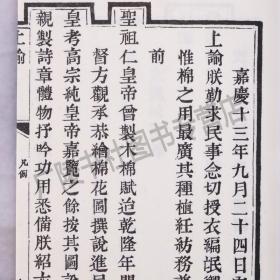 嘉慶十三年九月二十四日
上諭朕勤求民事念切授衣編氓
惟棉之用最廣其種植紡務
前
聖祖仁皇帝曾製木棉賦迨乾隆年間
督方觀承恭繪棉花圖撰說進
皇考高宗純皇帝嘉覽之餘按其圖說
親製詩章體物抒吟功用悉備朕紹
上諭
凡例